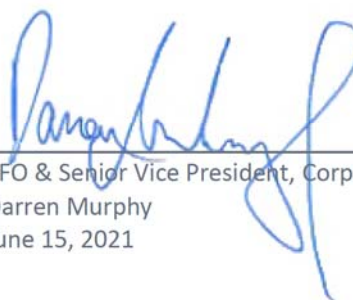 FO & Senior Vice President, Corp
arren Murphy
une 15, 2021